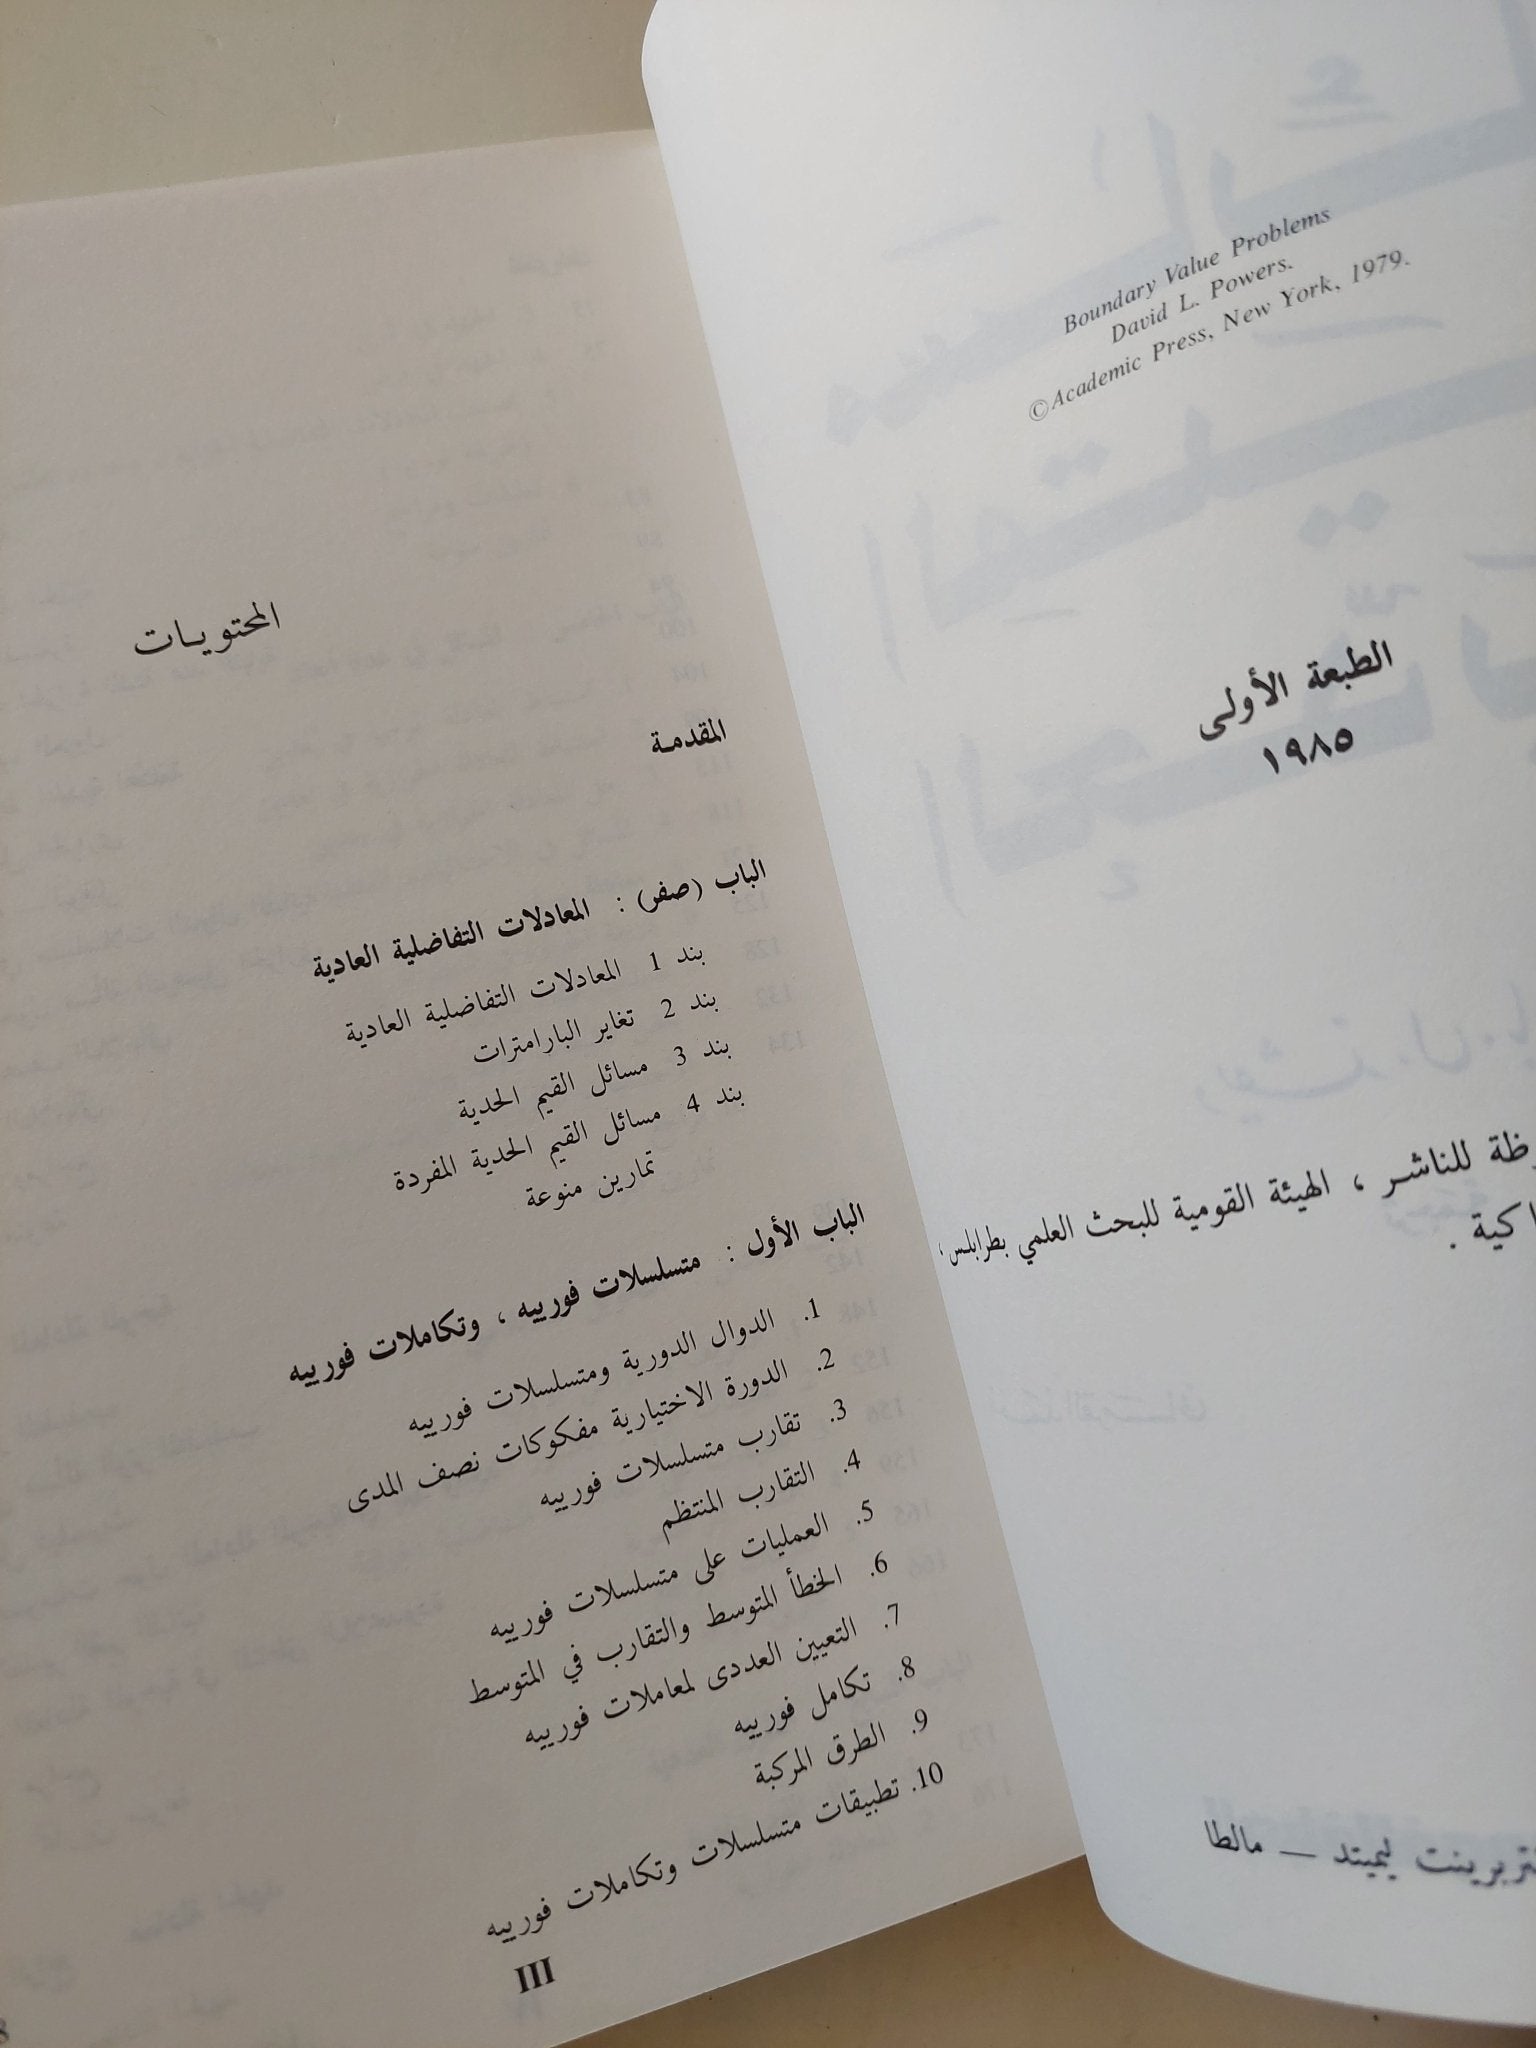 Boundary Value Problems
David L. Powers.
©Academic Press, New York, 1979.
الطبعة الأولى
١٩٨٥
للناشر ، الهيئة القومية للبحث العلمي بطرابلس ،
ليميتد — مالطا
المحتويات
المقدمة
الباب (صفر) : المعادلات التفاضلية العادية
بند 1 المعادلات التفاضلية العادية
بند 2 تغاير البارامترات
بند 3 مسائل القيم الحدية
بند 4 مسائل القيم الحدية المفردة
تمارين منوعة
الباب الأول : متسلسلات فورييه ، وتكاملات فورييه
1. الدوال الدورية ومتسلسلات فورييه
2. الدورة الاختيارية مفكوكات نصف المدى
3. تقارب متسلسلات فورييه
4. التقارب المنتظم
5. العمليات على متسلسلات فورييه
6. الخطأ المتوسط والتقارب في المتوسط
7. التعيين العددى لمعاملات فورييه
8. تكامل فورييه
9. الطرق المركبة
10. تطبيقات متسلسلات وتكاملات فورييه
III